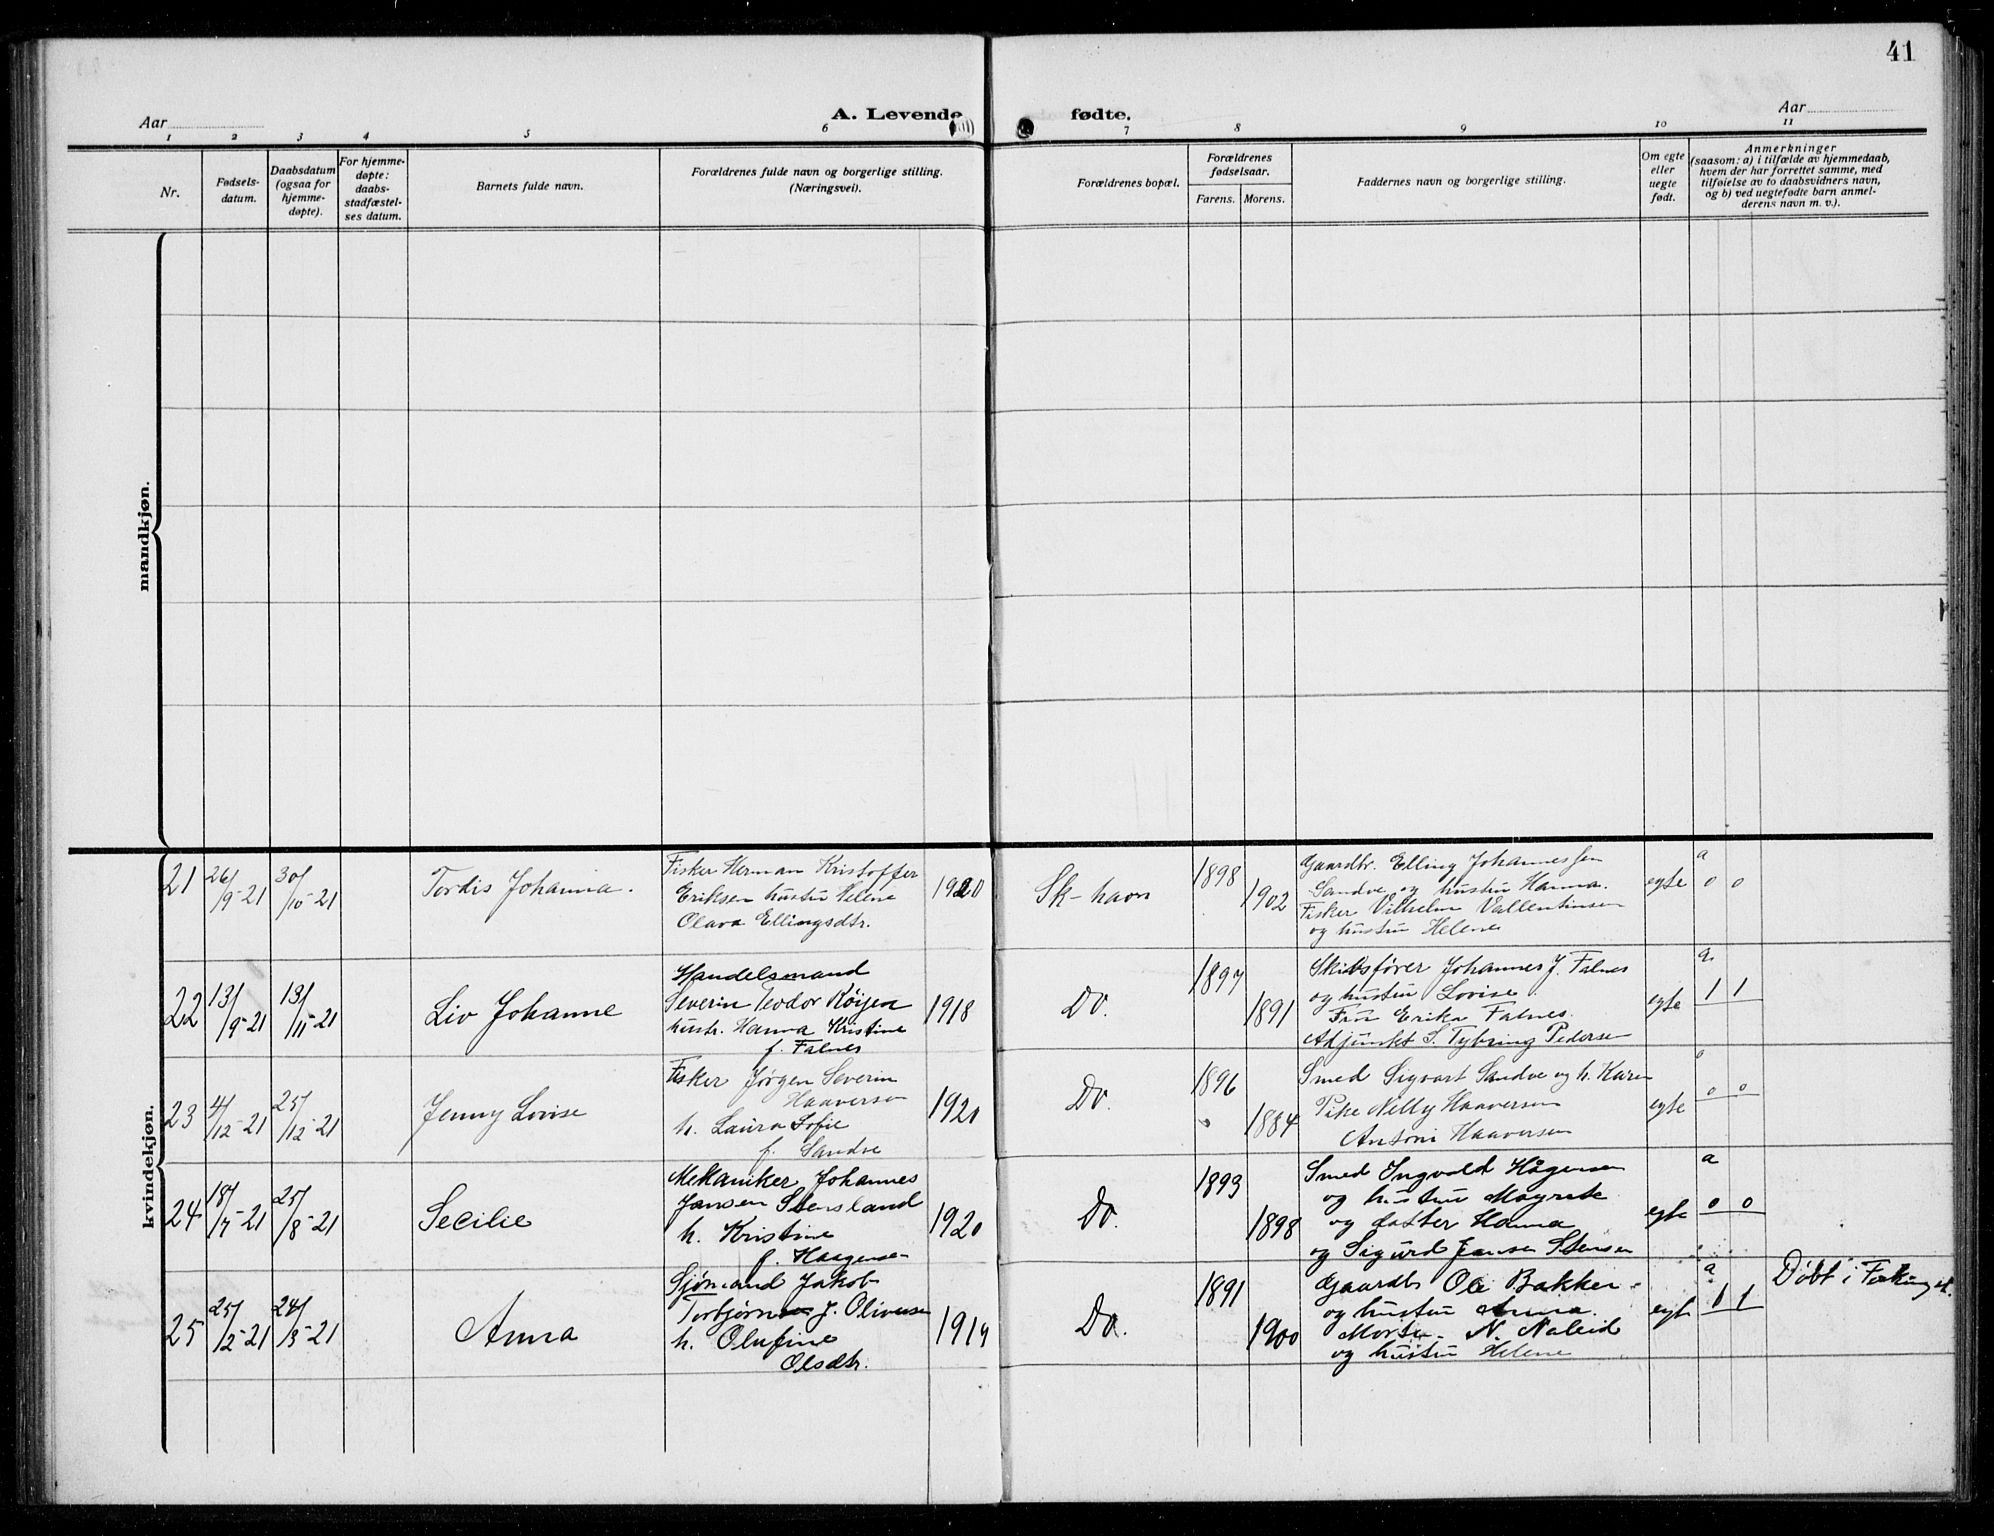 41
Aar
A. Levende fødte.
Aar
1 2 3 4 5 6 7 8 9 10 11
Nr.
Fødsels-
datum.
Daabsdatum
(ogsaa for
hjemme-
døpte).
For hjemme-
døpte:
daabs-
stadfæstel-
ses datum.
Barnets fulde navn.
Forældrenes fulde navn og borgerlige stilling.
(Næringsvei).
Forældrenes bopæl.
Forældrenes
fødselsaar.
Farens. Morens.
Faddernes navn og borgerlige stilling.
Om egte
eller
uegte
født.
Anmerkninger
(saasom: a) i tilfælde av hjemmedaab,
hvem der har forrettet samme, med
tilføielse av to daabsvidners navn,
og b) ved uegtefødte barn anmel-
derens navn m. v.).
mandkjøn.
kvindekjøn.
21 26/9-21 30/10-21 Tordis Johanna.
Fisker Herman Kristoffer
Eriksen hustru Helene
Olava Ellingsdtr.
1920 Sk-havn 1898 1902
Gaardbr. Elling Johannessen
Sandve og hustru Hanna.
Fisker Vilhelm Vallentinsen
og hustru Helene
egte a 0 0
22 13/9-21 13/11-21 Liv Johanne
Handelsmand
Severin Teodor Køijen
hustr. Hanna Kristine
f. Falnes
1918 Do. 1897 1891
Skibsfører Johannes J. Falnes
og hustru Lovise.
Fru Erika Falnes.
Adjunkt S. Tybring Pedersen
egte a 1 1
23 4/12-21 25/12-21 Jenny Lovise
Fisker Jørgen Severin
Haaversen
h. Laura Sofie
f. Sandve
1920 Do. 1896 1884
Smed Sigvart Sandve og h. Karen
Pike Nelly Haaversen
Antoni Haaversen
egte 0 0
24 18/7-21 25/8-21 Secilie
Mekaniker Johannes
Jansen Stensland
h. Kristine
f. Haagensen
1920 Do. 1893 1898
Smed Ingvald Hågensen
og hustru Magrete
og datter Hanna
og Sigurd Jansen Stensen
egte a 0 0
25 25/2-21 24/3-21 Anna
Sjømand Jakob
Torbjørn J. Oliversen
h. Olufine
Olsdtr.
1919 Do. 1891 1900
Gaardb. Ole Bakken
og hustru Anna.
N. Naleid
og hustru Helene
egte a 1 1
Døbt i